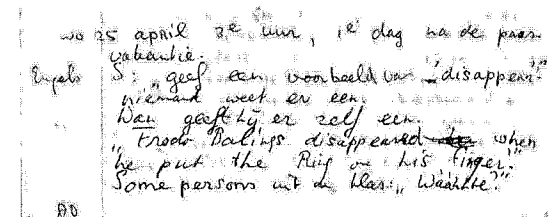 wo 25 april 3e uur, 1e dag na de paas
vakantie.
Engels S: "geef een voorbeeld van "disappear"
niemand weet er een.
Dan geeft hij er zelf een.
"Frodo Balings disappeared when
he put the Ring on his finger."
Some persons uit de klas: "Wáàhhte?"